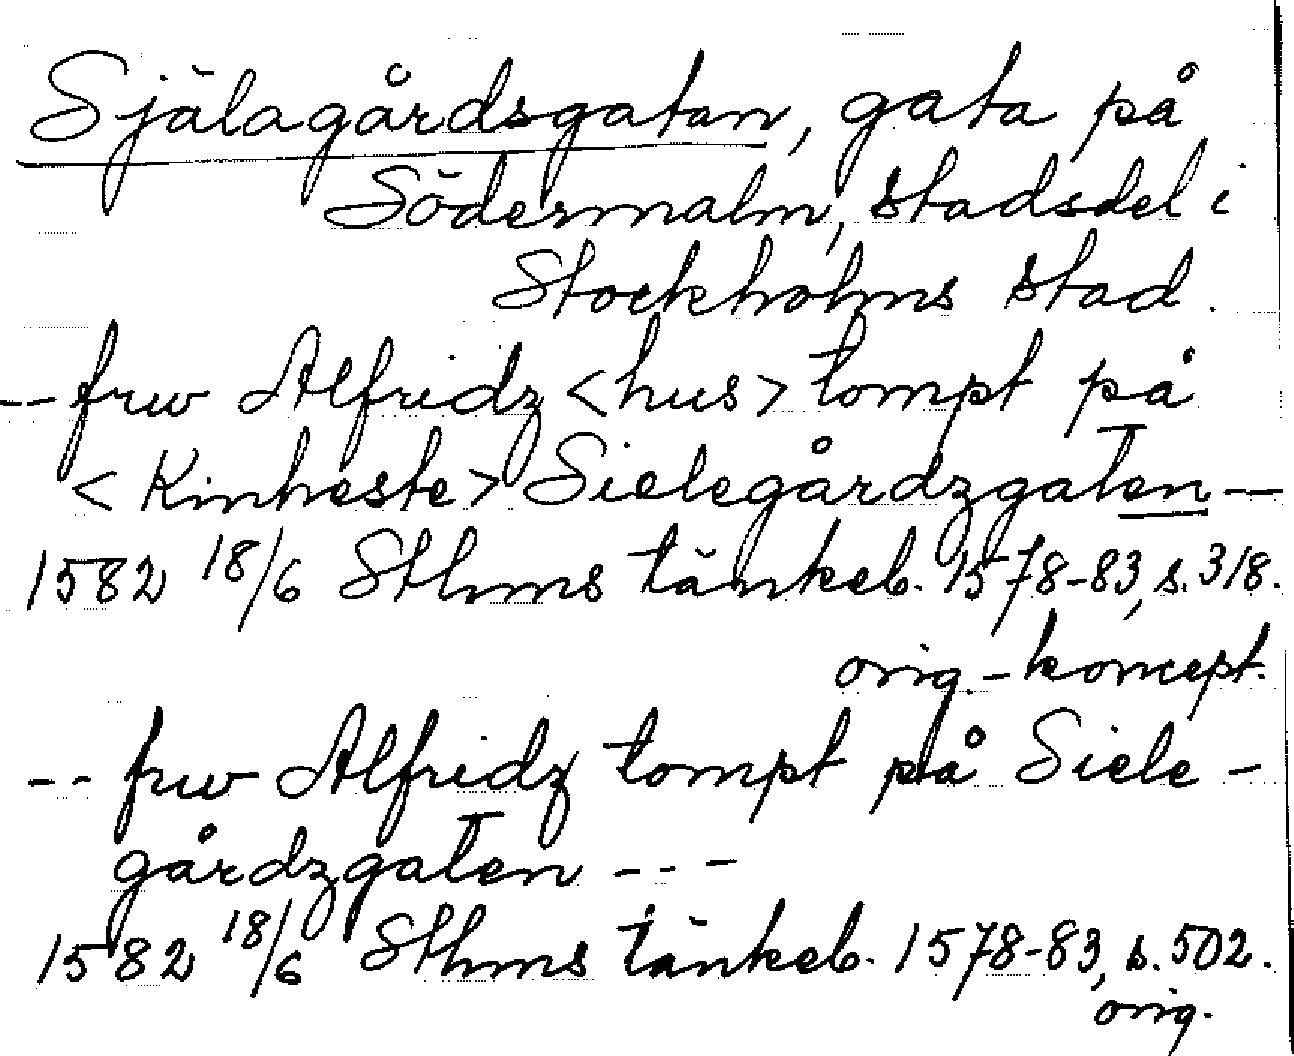 Själagårdsgatan, gata på
Södermalm, stadsdel i
Stockholms stad.
-- frw Alfridz <hus> tompt på
<Kinheste> Sielegårdzgaten --
1582 18/6 Sthms tänkeb. 1578-83, s. 318.
orig.-koncept.
-- frw Alfridz tompt på Siele-
gårdzgaten - - -
1582 18/6 Sthms tänkeb. 1578-83, s. 502.
orig.